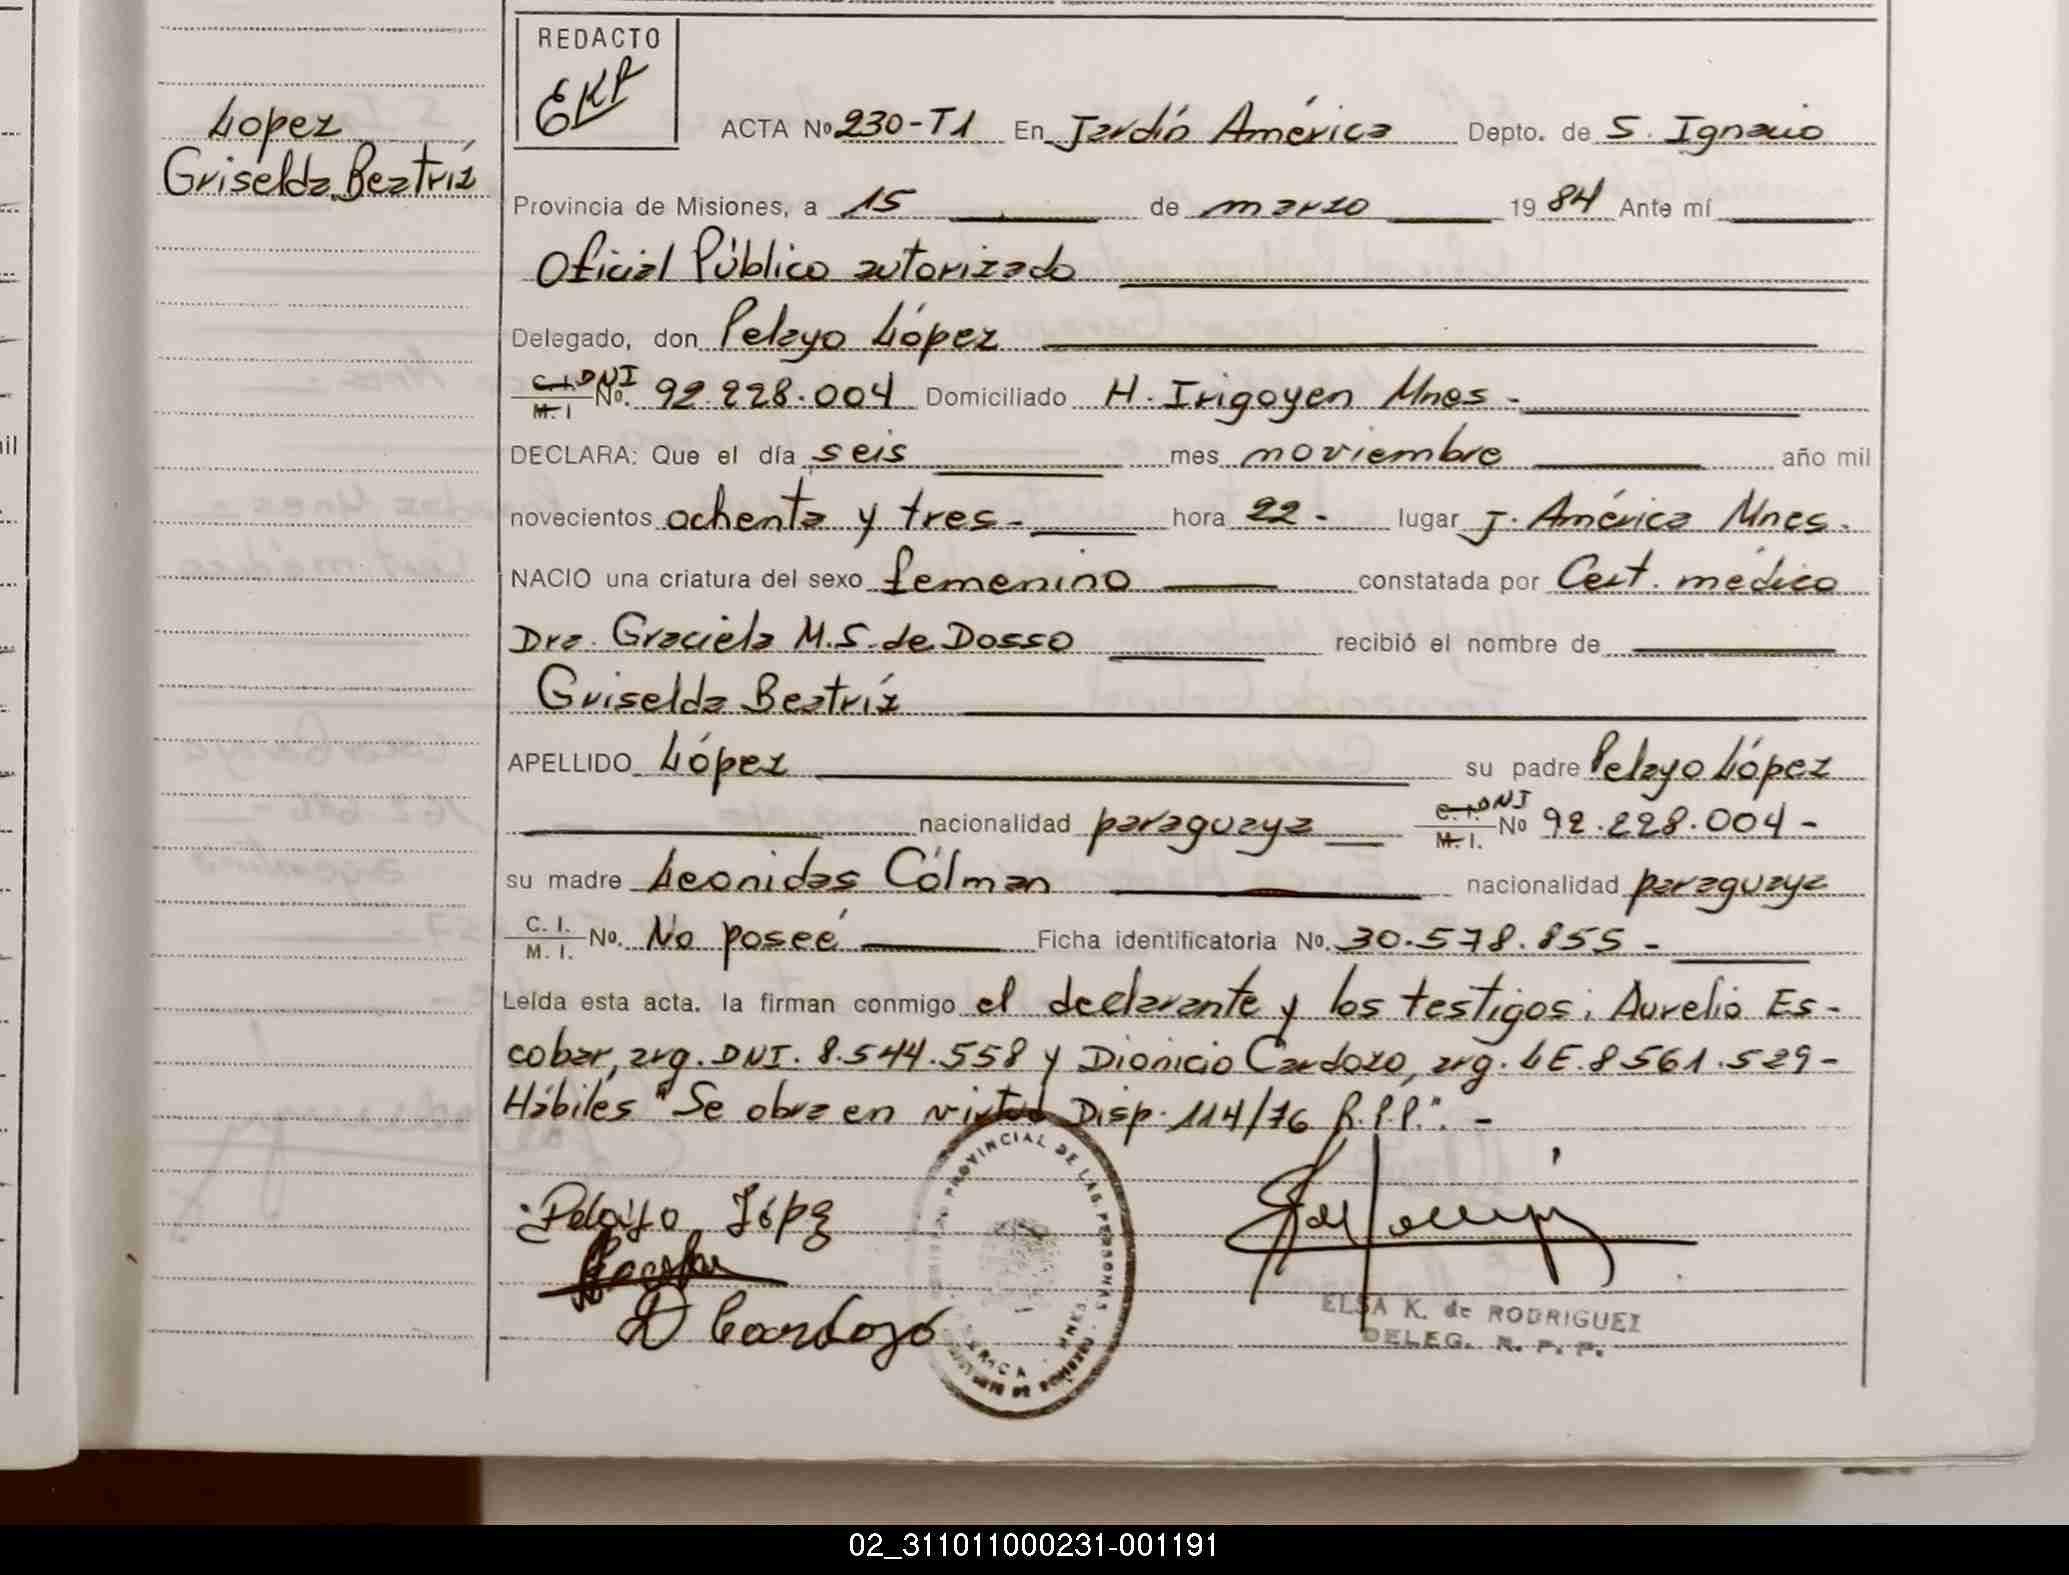 REDACTO
EKP
Lopez
Griselda Beatríz
ACTA Nº 230-T1 En Jardín América Depto. de S. Ignacio
Provincia de Misiones, a 15 de marzo 19 84 Ante mí
Oficial Público autorizado
Delegado, don Pelayo López
C.I. DNI
M. I Nº. 92.228.004 Domiciliado H. Irigoyen Mnes -
DECLARA: Que el día seis mes noviembre año mil
novecientos ochenta y tres - hora 22 - lugar J. América Mnes.
NACIO una criatura del sexo femenino constatada por Cert. médico
Dra. Graciela M.S. de Dosso recibió el nombre de
Griselda Beatríz
APELLIDO López su padre Pelayo López
nacionalidad paraguaya C.I. DNI M. I. Nº 92.228.004 -
su madre Leonidas Cólman nacionalidad paraguaya
C. I.
M. I. Nº. No poseé Ficha identificatoria Nº. 30.578.855 -
Leída esta acta. la firman conmigo el declarante y los testigos: Aurelio Es-
cobar, arg. DNI. 8.544.558 y Dionicio Cardozo, arg. LE. 8561.529 -
Hábiles "Se obra en virtud Disp. 114/76 R.P.P." . -
PROVINCIAL DE LAS PERSONAS
Pelayo López
D Cardozo
ELSA K. de RODRIGUEZ
DELEG. R. P. P.
02_311011000231-001191